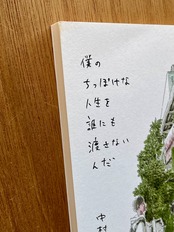 僕の
ちっぽけな
人生を
誰にも
渡さない
んだ
中村